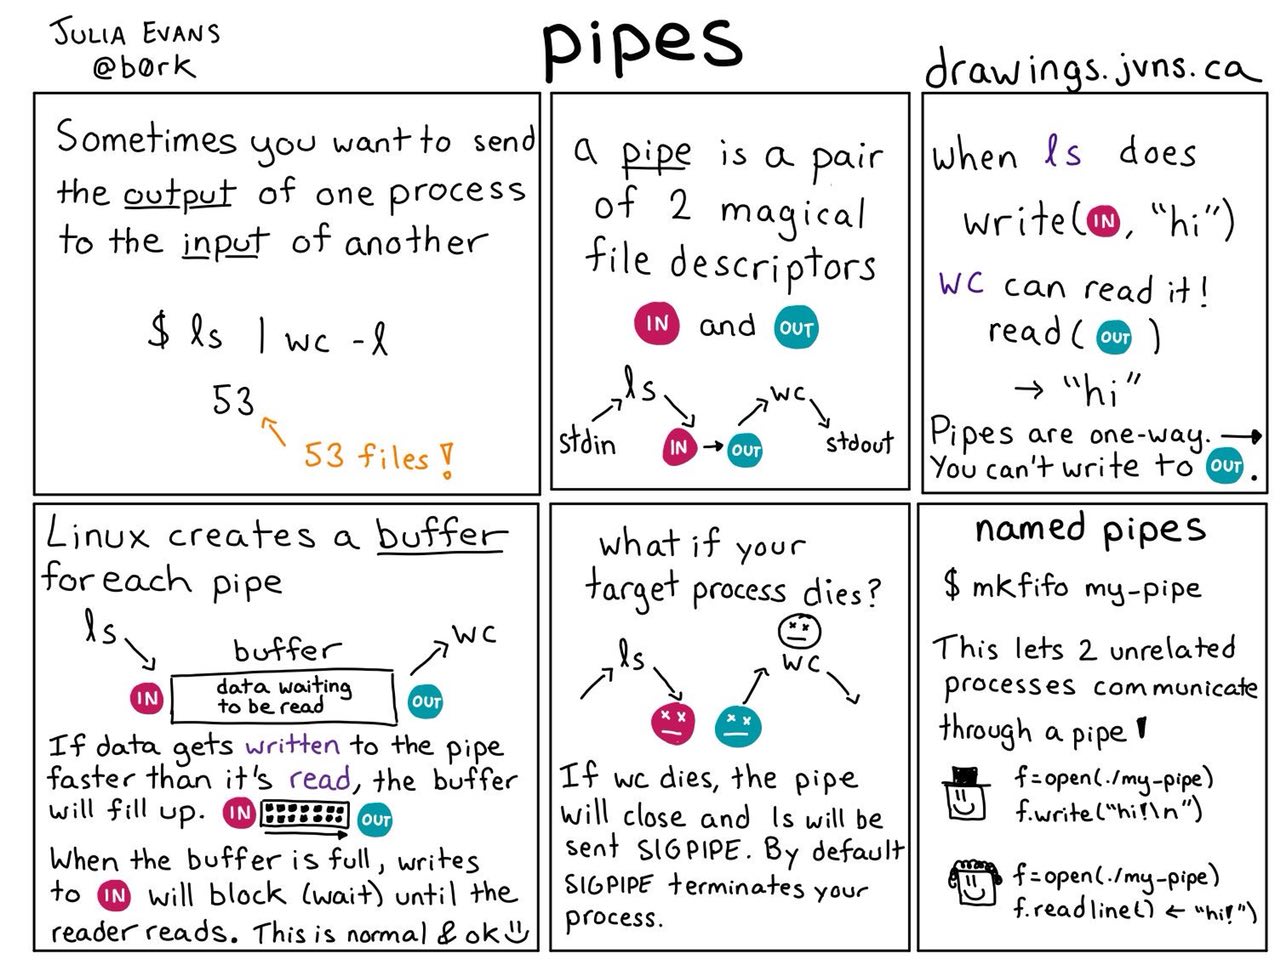 JULIA EVANS
@b0rk
pipes
drawings.jvns.ca
Sometimes you want to send
the output of one process
to the input of another
$ ls | wc -l
53
53 files!
a pipe is a pair
of 2 magical
file descriptors
IN and OUT
ls
wc
stdin
IN → OUT
stdout
when ls does
write(IN, "hi")
wc can read it!
read(OUT)
→ "hi"
Pipes are one-way. →
You can't write to OUT.
Linux creates a buffer
for each pipe
ls
wc
buffer
IN
data waiting
to be read
OUT
If data gets written to the pipe
faster than it's read, the buffer
will fill up. IN OUT
When the buffer is full, writes
to IN will block (wait) until the
reader reads. This is normal & ok
what if your
target process dies?
ls
wc
If wc dies, the pipe
will close and ls will be
sent SIGPIPE. By default
SIGPIPE terminates your
process.
named pipes
$ mkfifo my-pipe
This lets 2 unrelated
processes communicate
through a pipe!
f=open(./my-pipe)
f.write("hi!\n")
f=open(./my-pipe)
f.readline() ← "hi!")